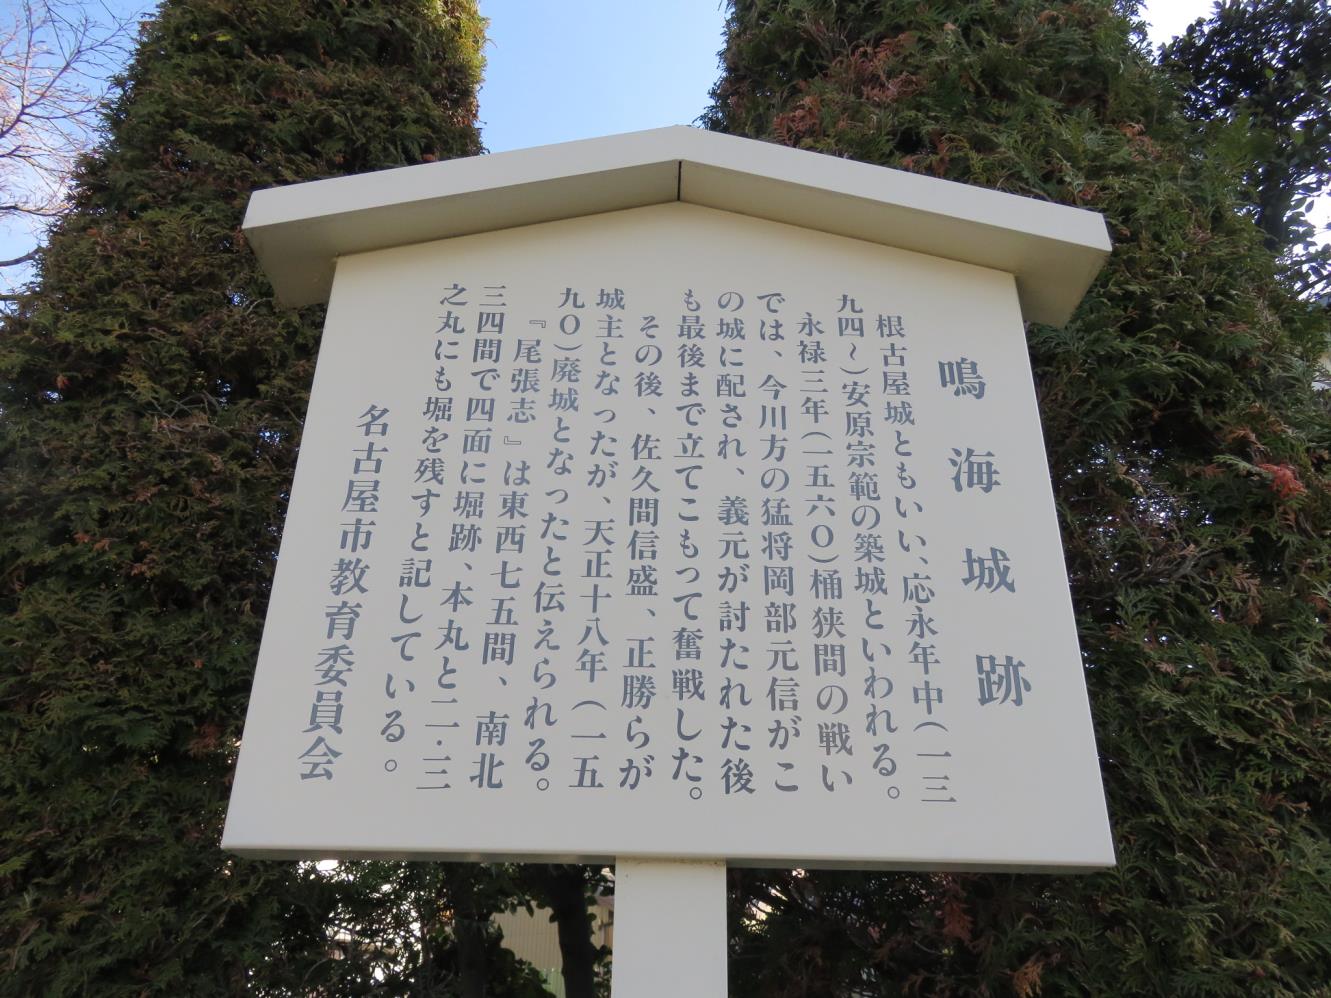 鳴海城跡
根古屋城ともいい、応永年中(一三
九四〜)安原宗範の築城といわれる。
永禄三年(一五六〇)桶狭間の戦い
では、今川方の猛将岡部元信がこ
の城に配され、義元が討たれた後
も最後まで立てこもって奮戦した。
その後、佐久間信盛、正勝らが
城主となったが、天正十八年(一五
九〇)廃城となったと伝えられる。
『尾張志』は東西七五間、南北
三四間で四面に堀跡、本丸と二・三
之丸にも堀を残すと記している。
名古屋市教育委員会